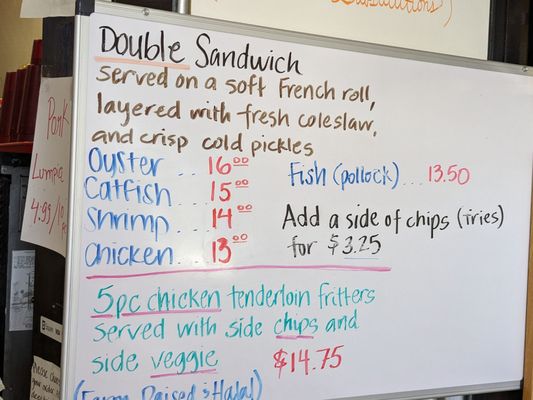 Substitutions)
Double Sandwich
served on a soft French roll,
layered with fresh coleslaw,
and crisp cold pickles
Oyster ... 16.00
Catfish ... 15.00
Shrimp ... 14.00
Chicken ... 13.00
Fish (pollock) ... 13.50
Add a side of chips (fries)
for $3.25
5pc chicken tenderloin fritters
served with side chips and
side veggie $14.75
(Farm Raised & Halal)
Pork
Lumpia
4.99/10